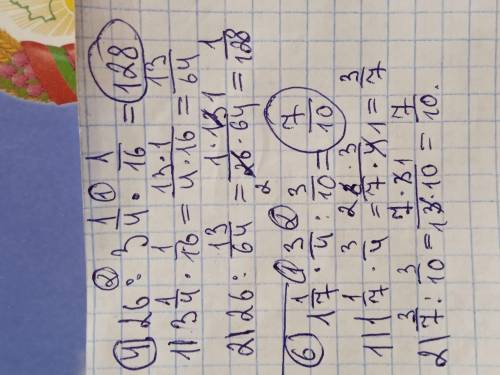 4) 26 : 3 1/4 · 1/16 = 128
② ①
1) 3 1/4 · 1/16 = 13·1/4·16 = 13/64
2) 26 : 13/64 = 1·13/26·64 = 1/128
6) 1 1/7 · 3/4 : 3/10 = 7/10
① ②
1) 1 1/7 · 3/4 = 28·3/7·4 = 3/7
2) 3/7 : 3/10 = 7·3/3·10 = 7/10.